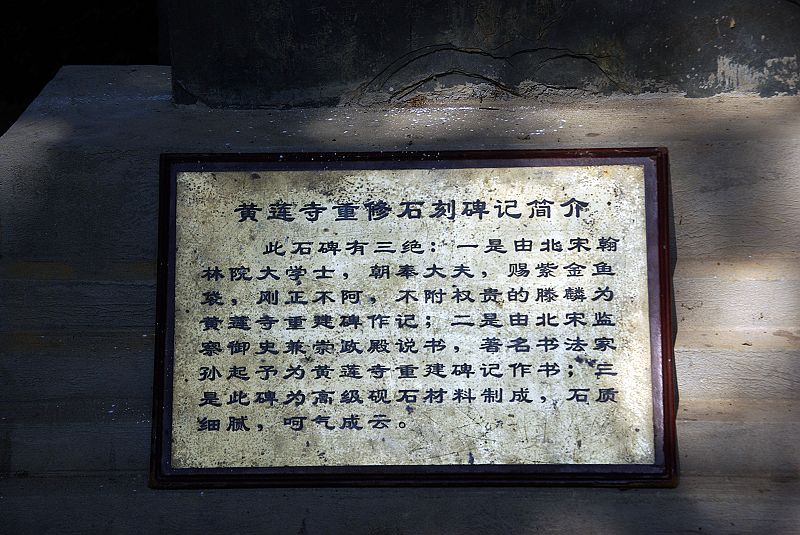 黄莲寺重修石刻碑记简介
此石碑有三绝：一是由北宋翰
林院大学士，朝奉大夫，赐紫金鱼
袋，刚正不阿，不附权贵的滕麟为
黄莲寺重建碑作记；二是由北宋监
察御史兼崇政殿说书，著名书法家
孙起予为黄莲寺重建碑记作书；三
是此碑为高级砚石材料制成，石质
细腻，呵气成云。